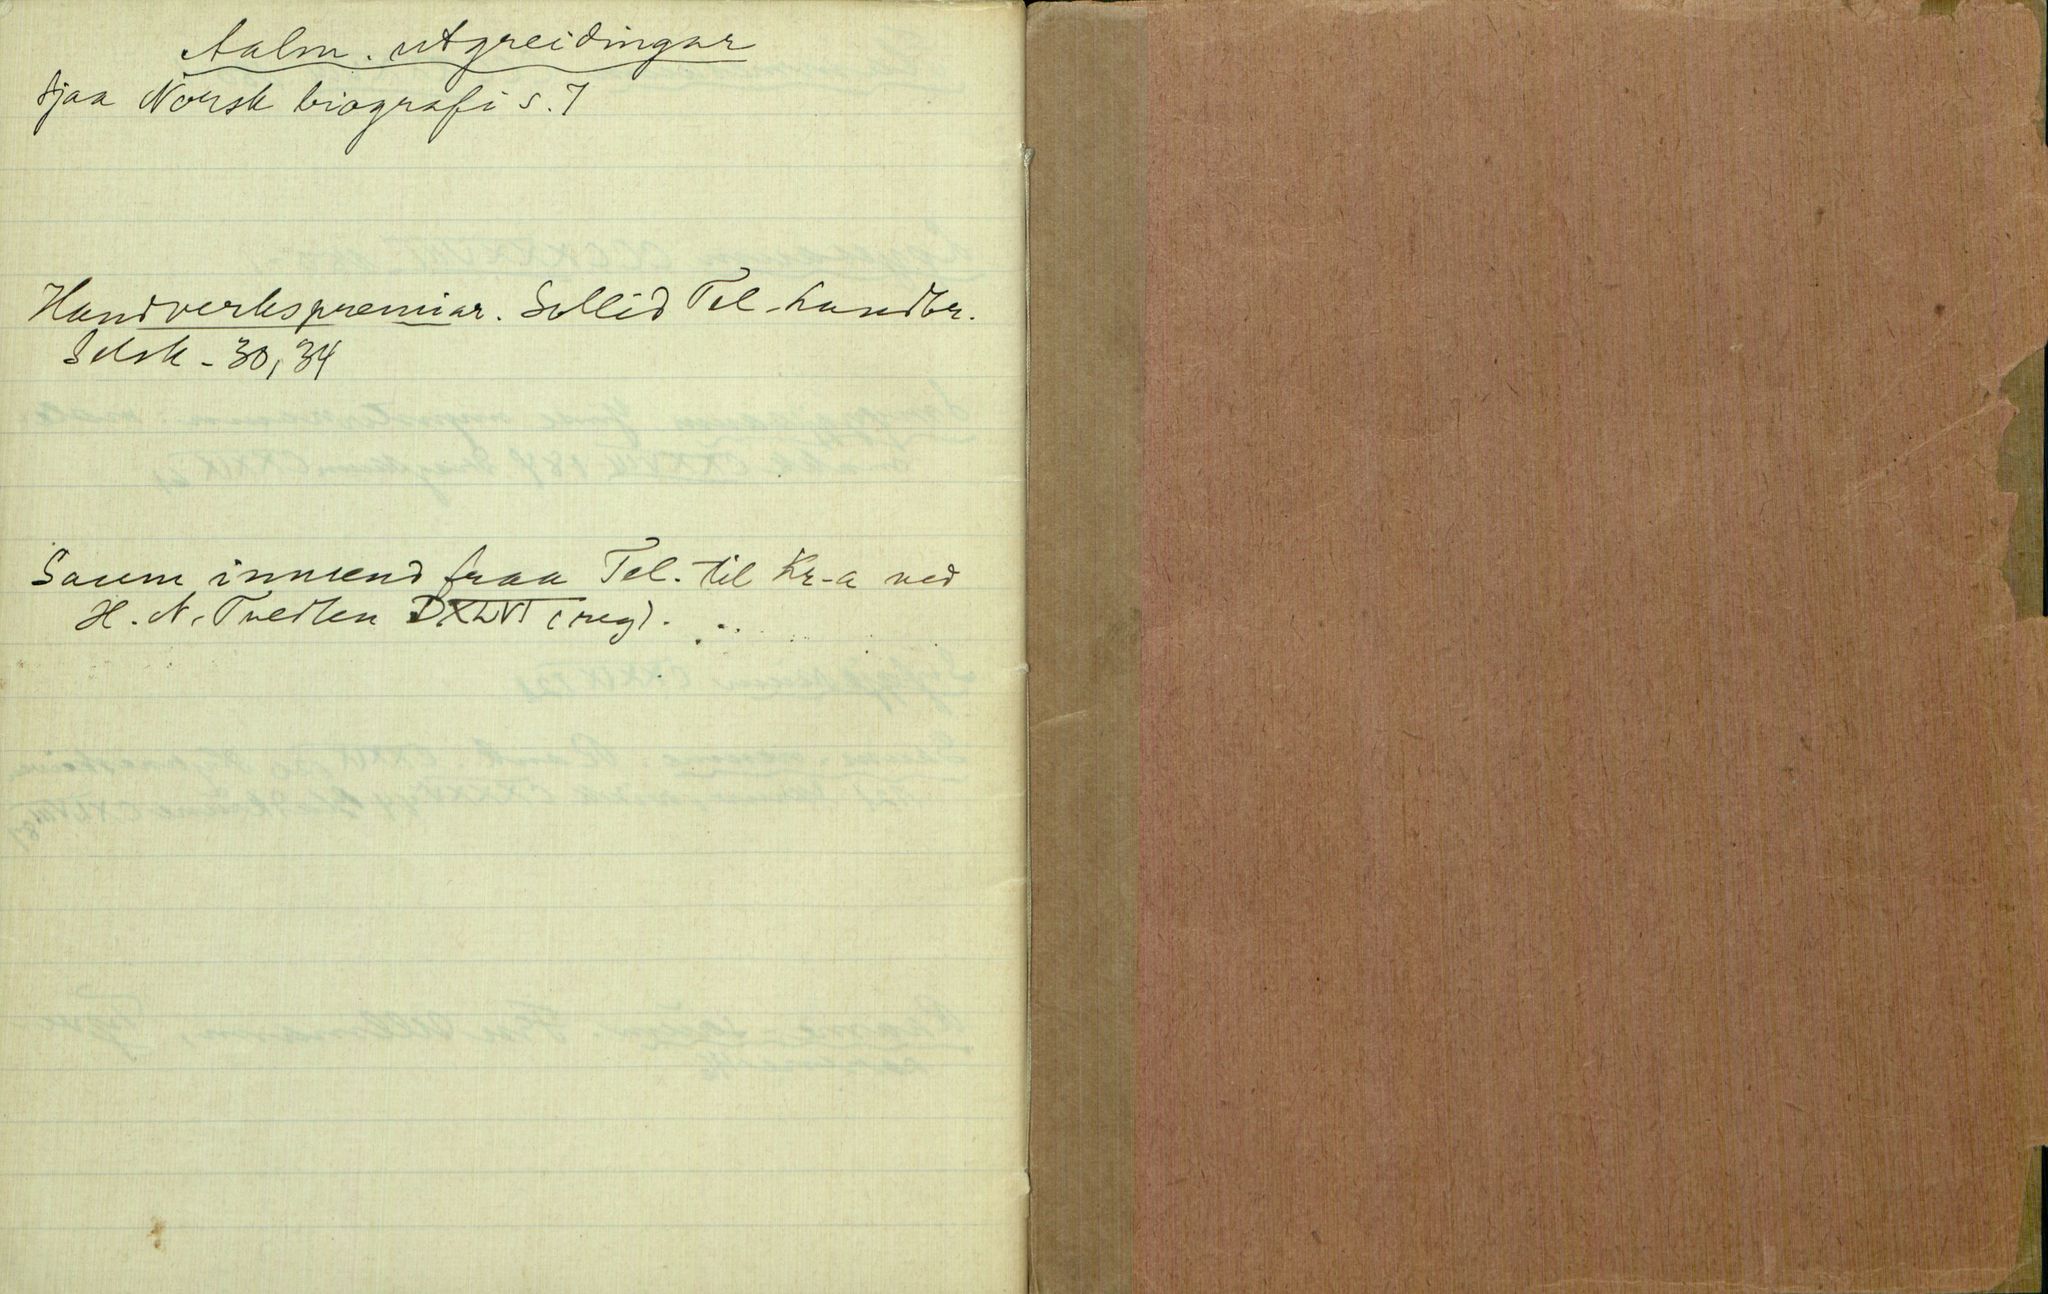 Aalm. utgreidingar
Sjaa Norsk biografi s. 7
Handverkspremiar. Sollid Tel. landbr.
Selsk - 30, 34
Saum innsend fraa Tel. til Kr-a ved
H. N. Tvedten DXLVI (reg).